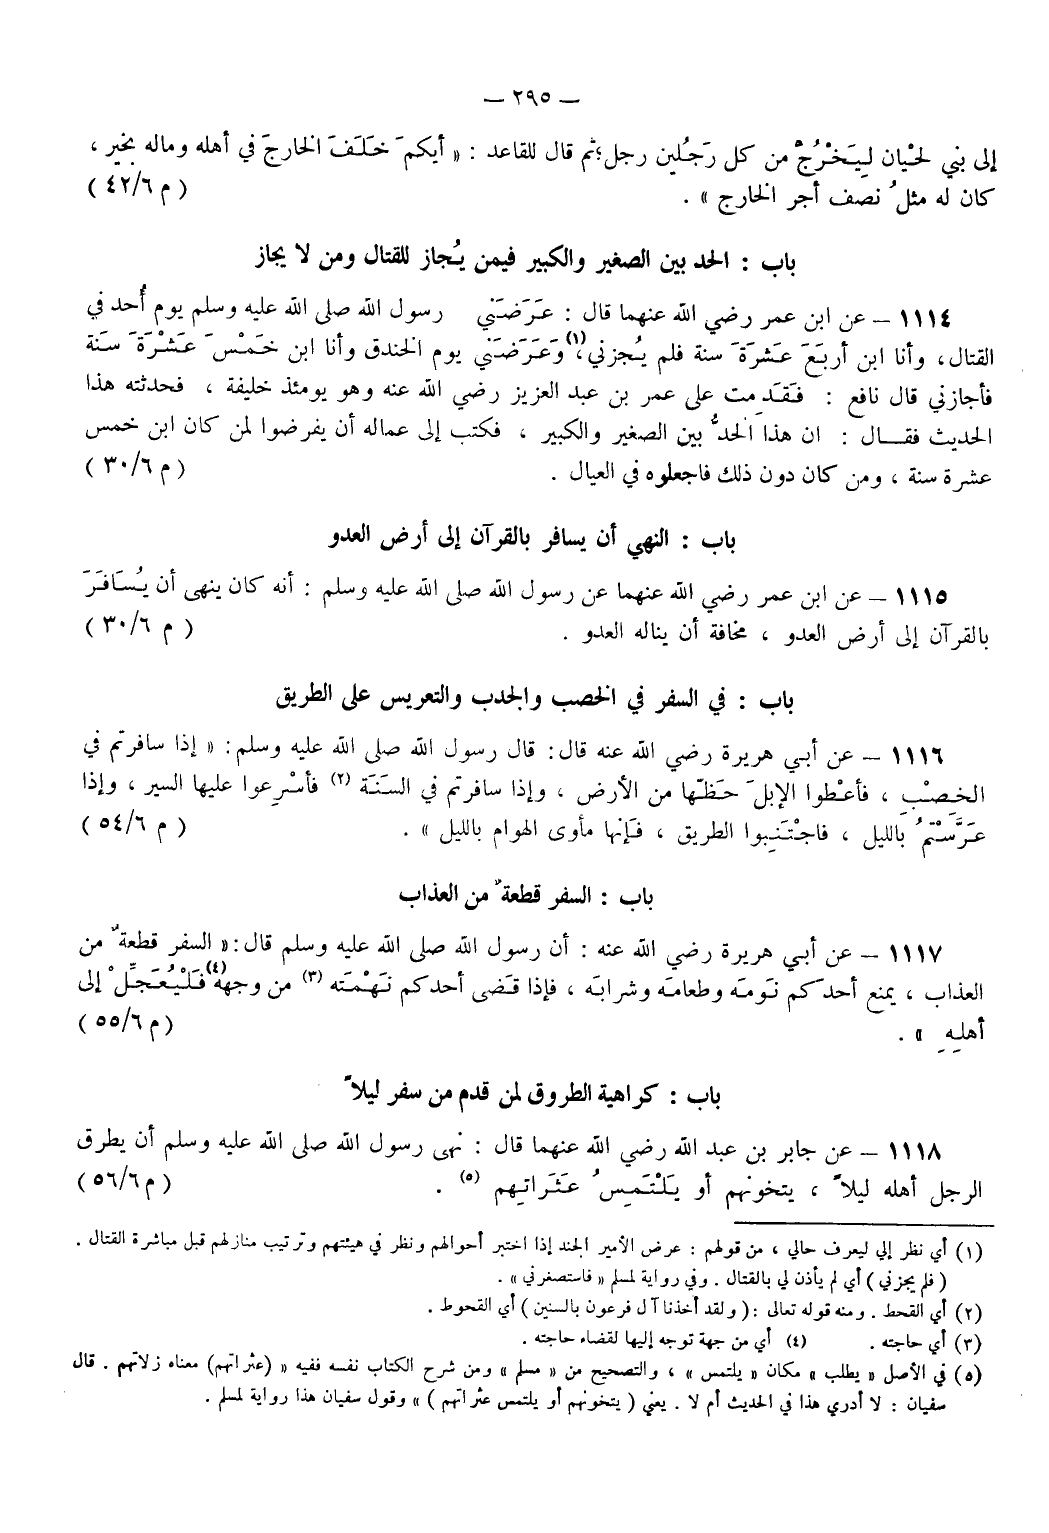 — ٢٩٥ —
إلى بني لحْيان لِيَخْرُجْ من كل رَجُلين رجل؛ثم قال للقاعد : « أيكم خَلَفَ الخارجَ في أهله وماله بخير ،
كان له مثلُ نصف أجر الخارج » . ( م ٤٢/٦ )
باب : الحد بين الصغير والكبير فيمن يُجاز للقتال ومن لا يجاز
١١١٤ – عن ابن عمر رضي الله عنهما قال : عَرَضَني رسول الله صلى الله عليه وسلم يوم أُحد في
القتال، وأنا ابن أربَعَ عَشرَةَ سنة فلم يُجزني(١)، وَعَرَضَني يوم الخندق وأنا ابن خمْسَ عَشْرَةَ سنَة
فأجازني قال نافع : فَقَدِمت على عمر بن عبد العزيز رضي الله عنه وهو يومئذ خليفة ، فحدثته هذا
الحديث فقال : ان هذا الحدُّ بين الصغير والكبير ، فكتب إلى عماله أن يفرضوا لمن كان ابن خمس
عشرة سنة ، ومن كان دون ذلك فاجعلوه في العيال . ( م ٣٠/٦ )
باب : النهي أن يسافر بالقرآن إلى أرض العدو
١١١٥ – عن ابن عمر رضي الله عنهما عن رسول الله صلى الله عليه وسلم : أنه كان ينهى أن يُسَافَرَ
بالقرآن إلى أرض العدو ، مخافة أن يناله العدو . ( م ٣٠/٦ )
باب : في السفر في الخصب والجدب والتعريس على الطريق
١١١٦ – عن أبي هريرة رضي الله عنه قال: قال رسول الله صلى الله عليه وسلم: « إذا سافرتم في
الخِصْبِ ، فأعْطوا الإبلَ حَظَّها من الأرض ، وإذا سافرتم في السَنَة (٢) فأسْرِعوا عليها السير ، وإذا
عَرَّسْتمُ بالليل ، فاجْتَنِبوا الطريق ، فَإنها مأوى الهوام بالليل » . ( م ٥٤/٦ )
باب : السفر قطعةٌ من العذاب
١١١٧ – عن أبي هريرة رضي الله عنه : أن رسول الله صلى الله عليه وسلم قال:« السفر قطعةٌ من
العذاب ، يمنع أحدكم نَومَه وطعامَه وشرابَه ، فإذا قَضى أحدكم نَهْمَتَه (٣) من وجهه(٤) فَلْيُعَجِّلْ إلى
أهلِهِ » . ( م ٥٥/٦ )
باب : كراهية الطروق لمن قدم من سفر ليلاً
١١١٨ – عن جابر بن عبد الله رضي الله عنهما قال : نهى رسول الله صلى الله عليه وسلم أن يطرق
الرجل أهله ليلاً ، يتخونهم أو يَلْتَمِسُ عَثَراتِهم (٥) . ( م ٥٦/٦ )
(١) أي نظر إلي ليعرف حالي ، من قولهم : عرض الأمير الجند إذا اختبر أحوالهم ونظر في هيئتهم وترتيب منازلهم قبل مباشرة القتال .
( فلم يجزني ) أي لم يأذن لي بالقتال . وفي رواية لمسلم « فاستصغرني » .
(٢) أي القحط . ومنه قوله تعالى :( ولقد أخذنا آل فرعون بالسنين ) أي القحوط .
(٣) أي حاجته . (٤) أي من جهة توجه إليها لقضاء حاجته .
(٥) في الأصل « يطلب » مكان « يلتمس » ، والتصحيح من « مسلم » ومن شرح الكتاب نفسه ففيه « (عثراتهم) معناه زلاتهم . قال
سفيان : لا أدري هذا في الحديث أم لا . يعني ( يتخونهم أو يلتمس عثراتهم ) » وقول سفيان هذا رواية لمسلم .